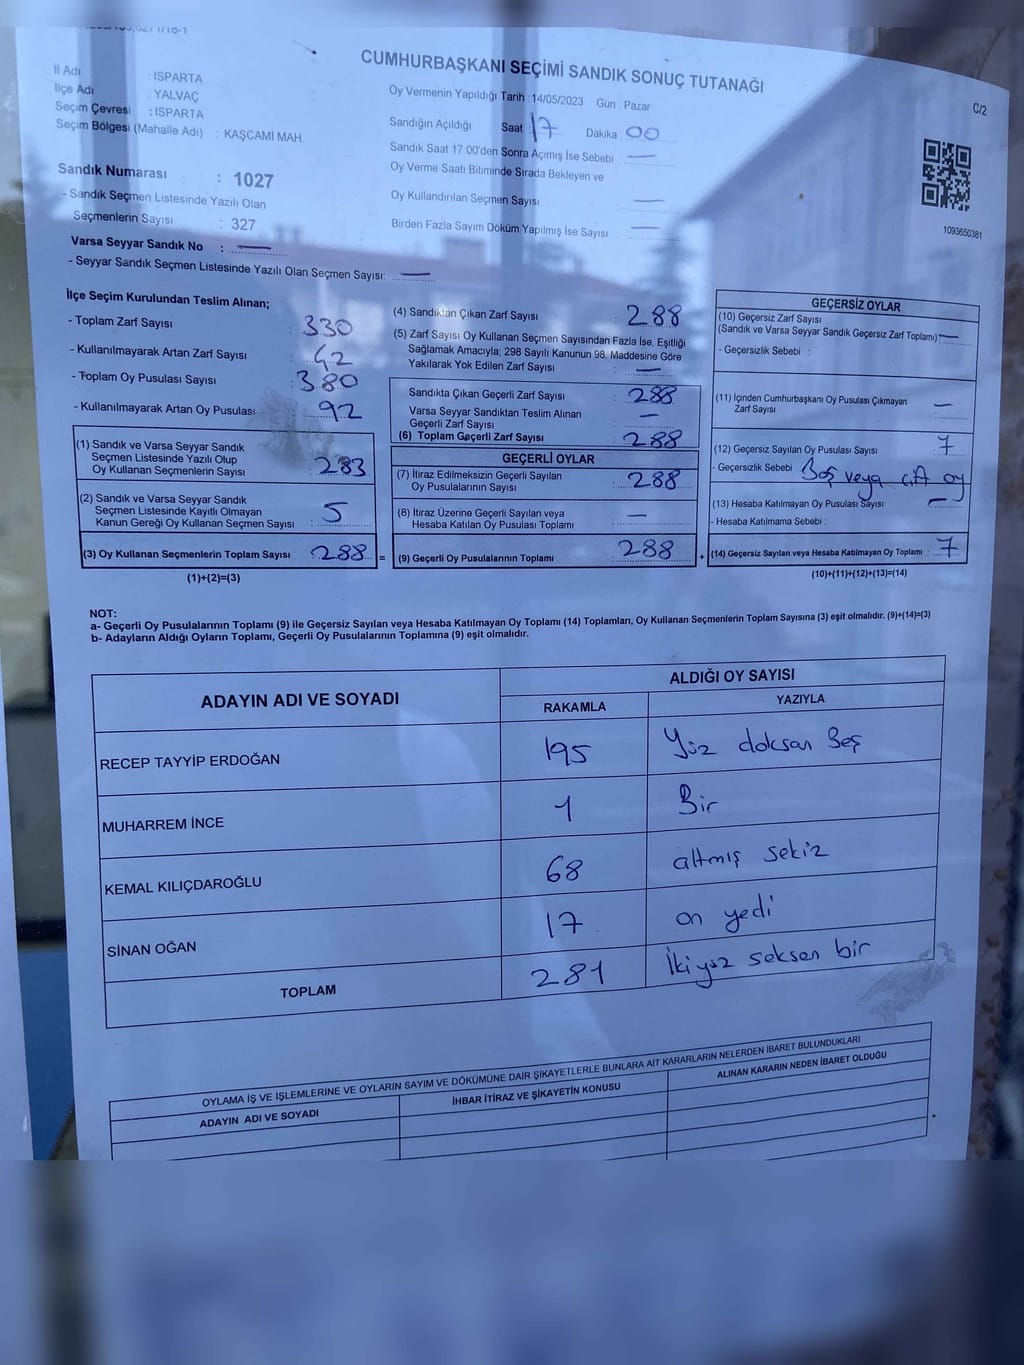 CUMHURBAŞKANI SEÇİMİ SANDIK SONUÇ TUTANAĞI
C/2
İl Adı : ISPARTA
İlçe Adı : YALVAÇ
Seçim Çevresi : ISPARTA
Seçim Bölgesi (Mahalle Adı) : KAŞCAMİ MAH.
Sandık Numarası : 1027
- Sandık Seçmen Listesinde Yazılı Olan
Seçmenlerin Sayısı : 327
Varsa Seyyar Sandık No : —
- Seyyar Sandık Seçmen Listesinde Yazılı Olan Seçmen Sayısı: —
Oy Vermenin Yapıldığı Tarih : 14/05/2023 Gün : Pazar
Sandığın Açıldığı Saat 17 Dakika 00
Sandık Saat 17.00'den Sonra Açımış İse Sebebi : —
Oy Verme Saati Bitiminde Sırada Bekleyen ve
Oy Kullandırılan Seçmen Sayısı : —
Birden Fazla Sayım Döküm Yapılmış İse Sayısı : —
1093650381
İlçe Seçim Kurulundan Teslim Alınan;
- Toplam Zarf Sayısı : 330
- Kullanılmayarak Artan Zarf Sayısı : 42
- Toplam Oy Pusulası Sayısı : 380
- Kullanılmayarak Artan Oy Pusulası : 92
(1) Sandık ve Varsa Seyyar Sandık
Seçmen Listesinde Yazılı Olup
Oy Kullanan Seçmenlerin Sayısı : 283
(2) Sandık ve Varsa Seyyar Sandık
Seçmen Listesinde Kayıtlı Olmayan
Kanun Gereği Oy Kullanan Seçmen Sayısı : 5
(3) Oy Kullanan Seçmenlerin Toplam Sayısı : 288 =
(1)+(2)=(3)
(4) Sandıktan Çıkan Zarf Sayısı : 288
(5) Zarf Sayısı Oy Kullanan Seçmen Sayısından Fazla İse, Eşitliği
Sağlamak Amacıyla; 298 Sayılı Kanunun 98. Maddesine Göre
Yakılarak Yok Edilen Zarf Sayısı : —
Sandıkta Çıkan Geçerli Zarf Sayısı : 288
Varsa Seyyar Sandıktan Teslim Alınan
Geçerli Zarf Sayısı : —
(6) Toplam Geçerli Zarf Sayısı : 288
GEÇERLİ OYLAR
(7) İtiraz Edilmeksizin Geçerli Sayılan
Oy Pusulalarının Sayısı : 288
(8) İtiraz Üzerine Geçerli Sayılan veya
Hesaba Katılan Oy Pusulası Toplamı : —
(9) Geçerli Oy Pusulalarının Toplamı : 288 +
GEÇERSİZ OYLAR
(10) Geçersiz Zarf Sayısı
(Sandık ve Varsa Seyyar Sandık Geçersiz Zarf Toplamı) : —
- Geçersizlik Sebebi :
(11) İçinden Cumhurbaşkanı Oy Pusulası Çıkmayan
Zarf Sayısı : —
(12) Geçersiz Sayılan Oy Pusulası Sayısı : 7
- Geçersizlik Sebebi : Boş veya çift oy
(13) Hesaba Katılmayan Oy Pusulası Sayısı : —
- Hesaba Katılmama Sebebi :
(14) Geçersiz Sayılan veya Hesaba Katılmayan Oy Toplamı : 7
(10)+(11)+(12)+(13)=(14)
NOT:
a- Geçerli Oy Pusulalarının Toplamı (9) ile Geçersiz Sayılan veya Hesaba Katılmayan Oy Toplamı (14) Toplamları, Oy Kullanan Seçmenlerin Toplam Sayısına (3) eşit olmalıdır. (9)+(14)=(3)
b- Adayların Aldığı Oyların Toplamı, Geçerli Oy Pusulalarının Toplamına (9) eşit olmalıdır.
ADAYIN ADI VE SOYADI
ALDIĞI OY SAYISI
RAKAMLA YAZIYLA
RECEP TAYYİP ERDOĞAN 195 Yüz doksan Beş
MUHARREM İNCE 1 Bir
KEMAL KILIÇDAROĞLU 68 altmış sekiz
SİNAN OĞAN 17 on yedi
TOPLAM 281 İkiyüz seksen bir
OYLAMA İŞ VE İŞLEMLERİNE VE OYLARIN SAYIM VE DÖKÜMÜNE DAİR ŞİKAYETLERLE BUNLARA AİT KARARLARIN NELERDEN İBARET BULUNDUKLARI
ADAYIN ADI VE SOYADI İHBAR İTİRAZ VE ŞİKAYETİN KONUSU ALINAN KARARIN NEDEN İBARET OLDUĞU